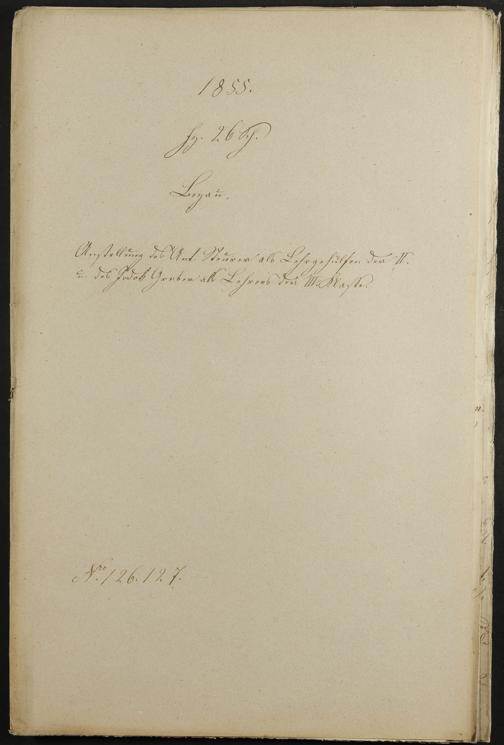 1855.
Fz. 26 Sch.
Bezau.
Anstellung des Ant. Steurer als Lehrgehülfen der II.
u. des Jodok Greber als Lehrers der III. Klasse.
Nro. 126. 127.